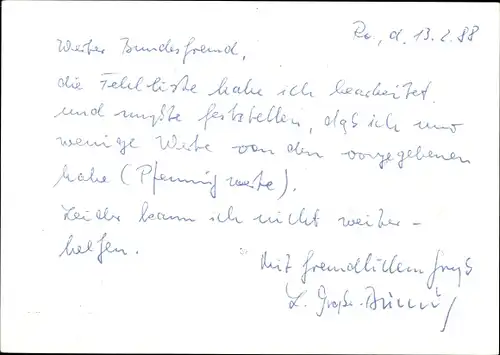 Ro., d. 13.2.88
Werter Bundesfreund,
die Fehlliste habe ich bearbeitet
und mußte feststellen, daß ich nur
wenige Werte von den vorgegebenen
habe (Pfennigwerte).
Leider kann ich nicht weiter-
helfen.
Mit freundlichem Gruß
L. Große-